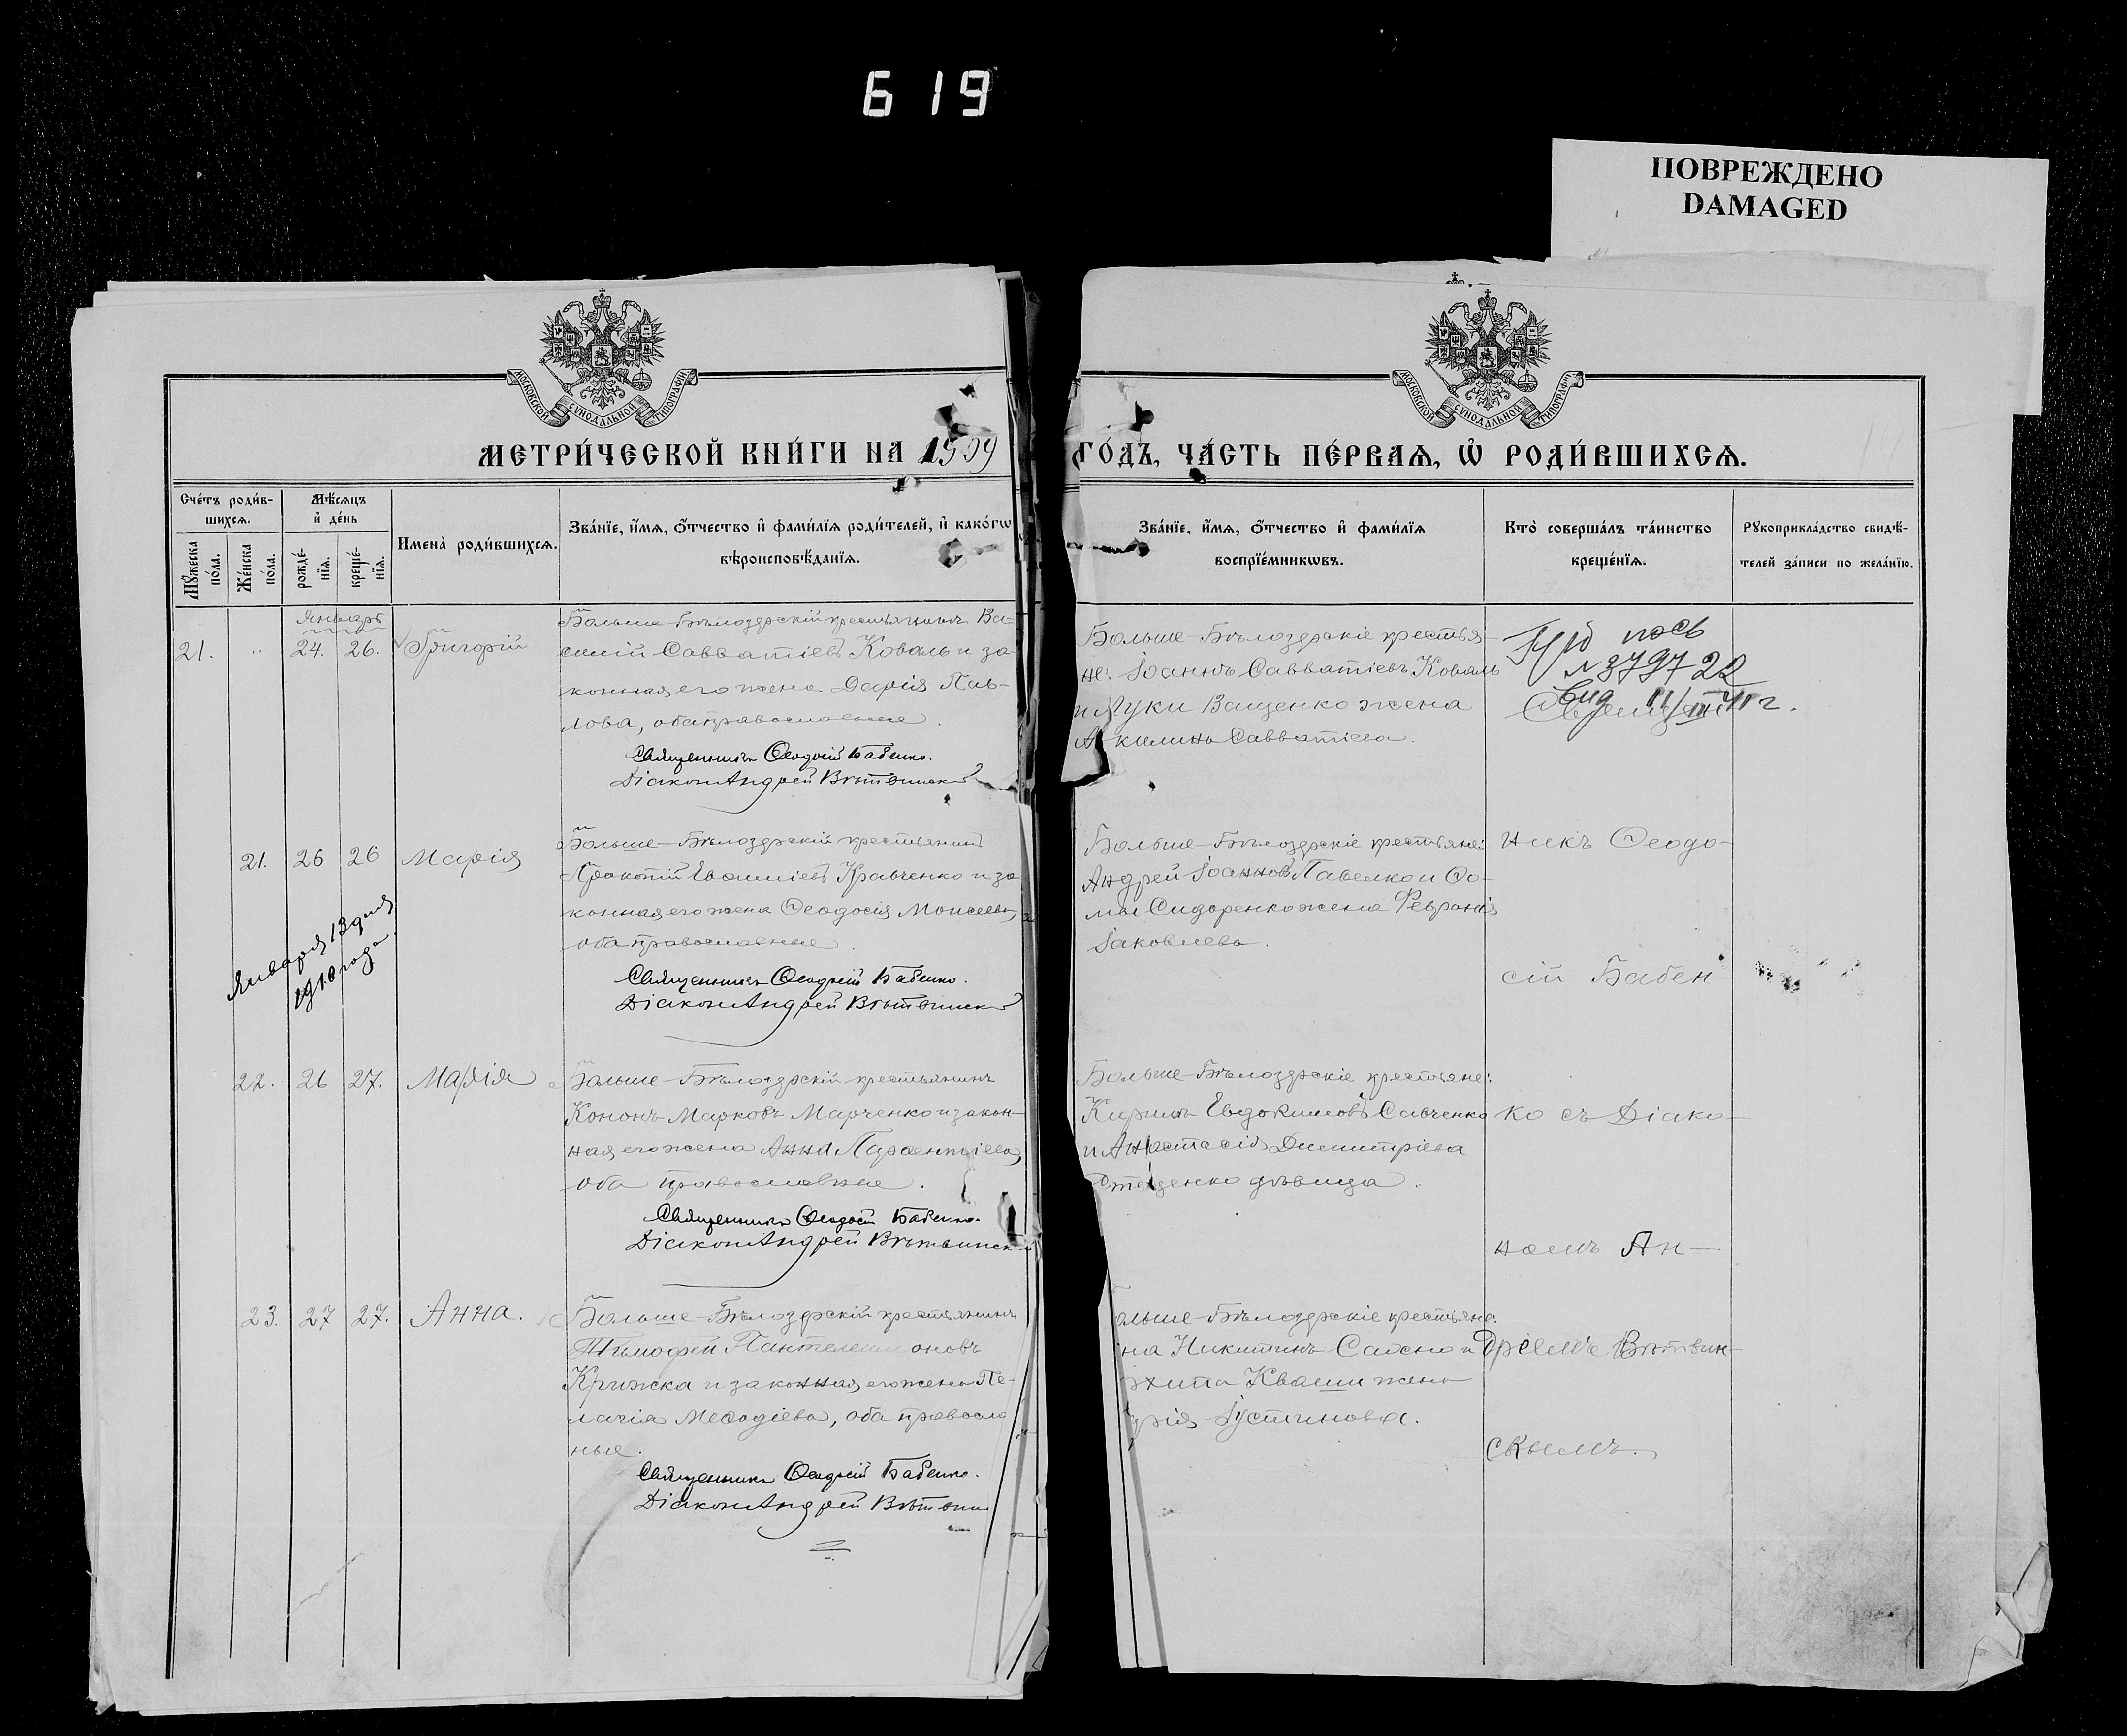 619
ПОВРЕЖДЕНО
DAMAGED
МОСКОВСКОЙ СУНОДАЛЬНОЙ ТИПОГРАФІИ
МОСКОВСКОЙ СУНОДАЛЬНОЙ ТИПОГРАФІИ
МЕТРИ́ЧЕСКОЙ КНИ́ГИ НА 1909
ГО́ДЪ, ЧА́СТЬ ПЕ́РВАѦ, Ѡ҆ РОДИ́ВШИХСѦ.
Счéтъ роди́в-
шихсѧ.
Мѣ́сѧцъ
и҆ де́нь
Мꙋ́жеска по́ла.
Же́нска по́ла.
рожде́-
нїѧ.
креще́-
нїѧ.
Имена̀ роди́вшихсѧ.
Зва́нїе, и҆́мѧ, ѻ҆́тчество и҆ фами́лїѧ роди́телей, и҆ како́гѡ
вѣроисповѣ́данїѧ.
Зва́нїе, и҆́мѧ, ѻ҆́тчество и҆ фами́лїѧ
воспрїе́мникѡвъ.
Кто̀ соверша́лъ та́инство
креще́нїѧ.
Рꙋкоприкла́дство свидѣ́-
телей за́писи по жела́нїю.
Январь
21. " 24. 26. Григорій
Больше-Бѣлозерскій крестьянинъ Ва-
силій Савватіевъ Коваль и за-
конная его жена Дарія Пав-
лова, оба православные.
Священникъ Ѳеодосій Бабенко.
Діаконъ Андрей Вѣтвинскій
Больше-Бѣлозерскіе крестья-
не: Іоаннъ Савватіевъ Коваль
и Луки Ващенко жена
Акилина Савватіева.
№ 3797 22
11/III 11 г.
21. 26 26 Марія
Больше-Бѣлозерскій крестьянинъ
Прокопій Евошліевъ Кравченко и за-
конная его жена Ѳеодосія Моисеева,
оба православные.
Священникъ Ѳеодосій Бабенко.
Діаконъ Андрей Вѣтвинскій
Января 13 дня
1910 года.
Больше-Бѣлозерскіе крестьяне:
Андрей Іоанновъ Павелко и Ѳо-
мы Сидоренко жена Февронія
Іаковлева.
никъ Ѳеодо-
сій Бабен-
22. 26 27. Марія
Больше-Бѣлозерскій крестьянинъ
Кононъ Марковъ Марченко и закон-
ная его жена Анна Парѳентіева,
оба православные.
Священникъ Ѳеодосій Бабенко.
Діаконъ Андрей Вѣтвинск
Больше-Бѣлозерскіе крестьяне:
Кириллъ Евдокимовъ Савченко
и Анастасія Димитріева
дѣвица.
ко съ Діако-
номъ Ан-
23. 27 27. Анна.
Больше-Бѣлозерскій крестьянинъ
Тимофей Пантелеимоновъ
Крижка и законная его жена Пе-
лагія Меѳодіева, оба правосла
ные.
Священникъ Ѳеодосій Бабенко.
Діаконъ Андрей Вѣтвин
ольше-Бѣлозерскіе крестьяне:
на Никитинъ и
Кваши жена
рія Іустинова.
дреемъ Вѣтвин-
скымъ.